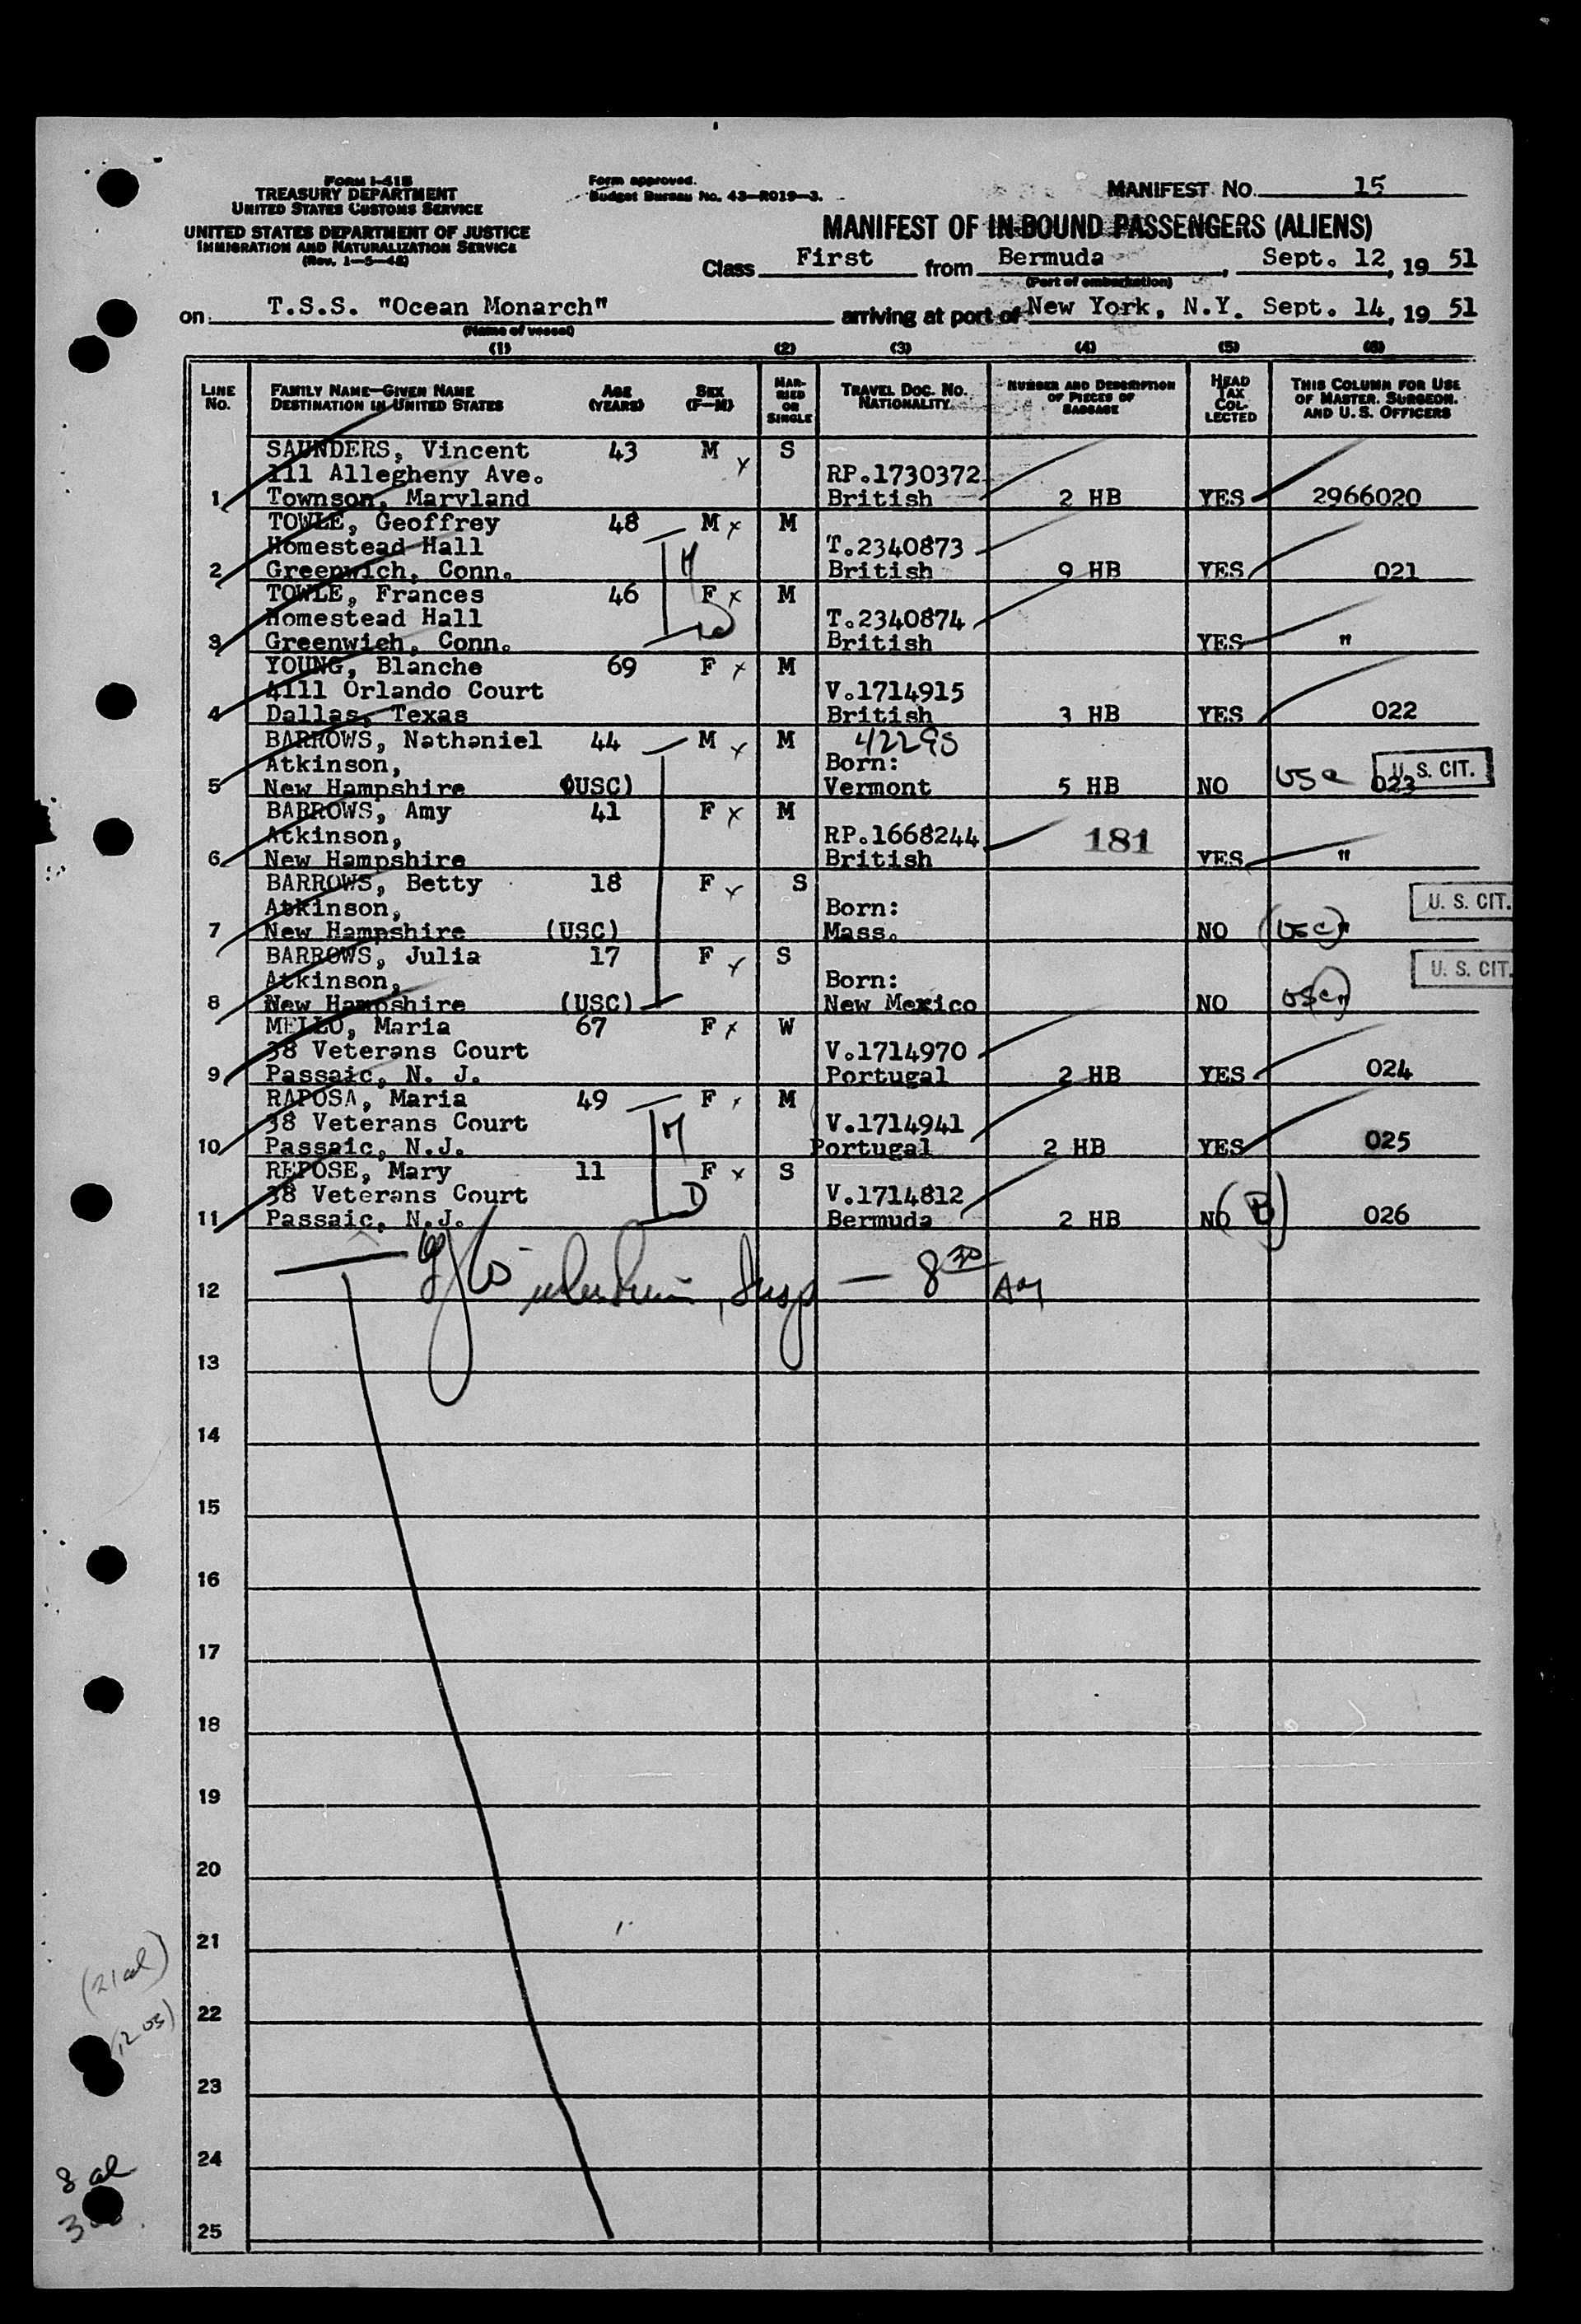 FORM I-415
TREASURY DEPARTMENT
UNITED STATES CUSTOMS SERVICE
UNITED STATES DEPARTMENT OF JUSTICE
IMMIGRATION AND NATURALIZATION SERVICE
(Rev. 1-5-48)
Form approved.
Budget Bureau No. 43-R019-3.
MANIFEST NO. 15
MANIFEST OF IN-BOUND PASSENGERS (ALIENS)
Class First from Bermuda, Sept. 12, 19 51
(Port of embarkation)
on T.S.S. "Ocean Monarch" arriving at port of New York, N.Y. Sept. 14, 19 51
(Name of vessel)
(1) (2) (3) (4) (5) (6)
LINE No. FAMILY NAME—GIVEN NAME DESTINATION IN UNITED STATES AGE (YEARS) SEX (F-M) MARRIED OR SINGLE TRAVEL DOC. NO. NATIONALITY NUMBER AND DESCRIPTION OF PIECES OF BAGGAGE HEAD TAX COLLECTED THIS COLUMN FOR USE OF MASTER. SURGEON. AND U.S. OFFICERS
SAUNDERS, Vincent 43 M x S
111 Allegheny Ave. RP.1730372
1 Townson, Maryland British 2 HB YES 2966020
TOWLE, Geoffrey 48 M x M
Homestead Hall T.2340873
2 Greenwich, Conn. British 9 HB YES 021
TOWLE, Frances 46 F x M
Homestead Hall T.2340874
3 Greenwich, Conn. British YES "
YOUNG, Blanche 69 F x M
4111 Orlando Court V.1714915
4 Dallas, Texas British 3 HB YES 022
BARROWS, Nathaniel 44 M x M 42295
Atkinson, Born:
5 New Hampshire (USC) Vermont 5 HB NO USC 023 U. S. CIT.
BARROWS, Amy 41 F x M
Atkinson, RP.1668244 181
6 New Hampshire British YES "
BARROWS, Betty 18 F x S
Atkinson, Born: U. S. CIT.
7 New Hampshire (USC) Mass. NO (USC) "
BARROWS, Julia 17 F x S
Atkinson, Born: U. S. CIT.
8 New Hampshire (USC) New Mexico NO USC "
MELLO, Maria 67 F x W
38 Veterans Court V.1714970
9 Passaic, N. J. Portugal 2 HB YES 024
RAPOSA, Maria 49 F x M
38 Veterans Court M V.1714941
10 Passaic, N.J. Portugal 2 HB YES 025
REPOSE, Mary 11 F x S
38 Veterans Court D V.1714812
11 Passaic, N.J. Bermuda 2 HB NO (B) 026
12 Insp — 8 30 AM
13
14
15
16
17
18
19
20
21
(21 al)
22
23
24
8 al
25